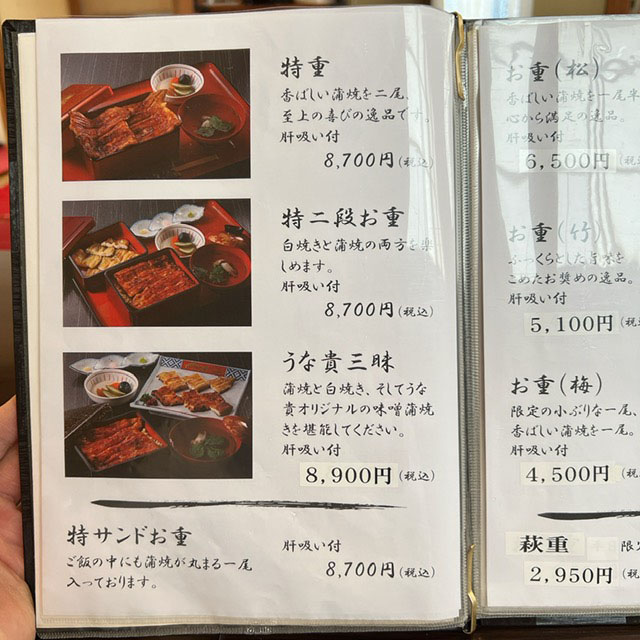 特重
香ばしい蒲焼を二尾、
至上の喜びの逸品です。
肝吸い付
8,700円(税込)
特二段お重
白焼きと蒲焼の両方を楽
しめます。
肝吸い付
8,700円(税込)
うな貴三昧
蒲焼と白焼き、そしてうな
貴オリジナルの味噌蒲焼
きを堪能してください。
肝吸い付
8,900円(税込)
特サンドお重
ご飯の中にも蒲焼が丸まる一尾
入っております。
肝吸い付
8,700円(税込)
お重(松)
香ばしい蒲焼を一尾半
心から満足の逸品。
肝吸い付
6,500円(税
お重(竹)
ふっくらとした旨さを
こめたお奨めの逸品。
肝吸い付
5,100円(税
お重(梅)
限定の小ぶりな一尾、
香ばしい蒲焼を一尾。
肝吸い付
4,500円(税
萩重
限定
2,950円(税